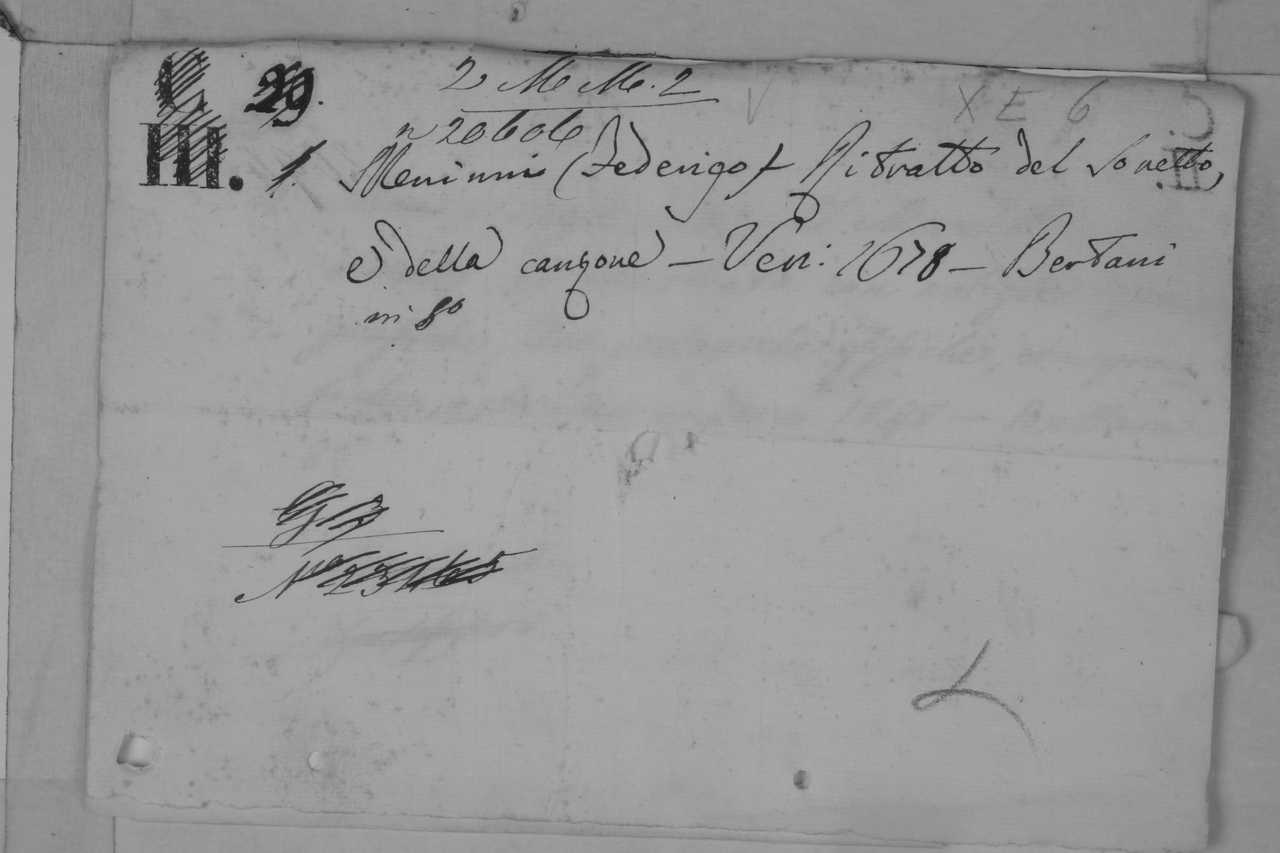 29.
2 M M. 2
XE 6
n 20606
III. 1. Meninni (Federigo) Ritratto del Sonetto,
e della canzone – Ven: 1678 – Bertani
in 8o